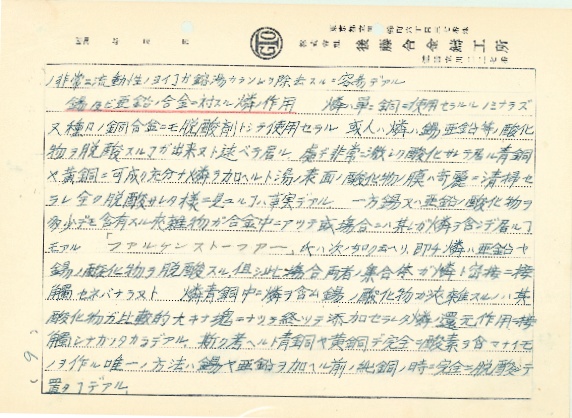 株式会社 後藤合金鋳工所
GTO
ノ非常ニ流動性ノヨイコガ鎔湯カラノヒク除去スルニ容易デアル
錫及ビ亜鉛ノ合金ニ対スル燐ノ作用 燐ハ単ニ銅ニ使用セラルルノミナラズ
又種々ノ銅合金ニモ脱酸剤トシテ使用セラル 或人ハ燐ハ錫亜鉛等ノ酸化
物ヲ脱酸スルコガ出来ヌト述ベテ居ル 処ガ非常ニ激シク酸化サレテ居ル青銅
又黄銅ニ可成リ充分ナ燐ヲ加ヘルト湯ノ表面ノ酸化物ノ膜ハ奇麗ニ清掃セ
ラレ全ク脱酸サレタ様ニ見ユルハ事実デアル 一方錫又ハ亜鉛ノ酸化物ヲ
多少デモ含有スル夾雑物ガ合金中ニアツテ或場合ニハ其ガ燐ヲ含ンデ居ルコ
モアル 「ファルケンストーファー」此ハ次ノ如ク云ヘリ、即チ燐ハ亜鉛ヤ
錫ノ酸化物ヲ脱酸スル 但シ此ノ場合両者ノ集合体ガ燐ト密接ニ接
触セネバナラヌト 燐青銅中ニ燐ヲ含ム錫ノ酸化物ガ夾雑スルハ其
酸化物ガ比較的大キナ塊ニナリテ終ツテ添加セラレタ燐ノ還元作用ニ接
触シナカツタカラデアル、斯ク考ヘルト青銅ヤ黄銅デ完全ニ酸素ヲ含マナイモ
ノヲ作ル唯一ノ方法ハ錫ヤ亜鉛ヲ加ヘル前ノ純銅ノ時ニ完全ニ脱酸シテ
置クコデアル、
(6)